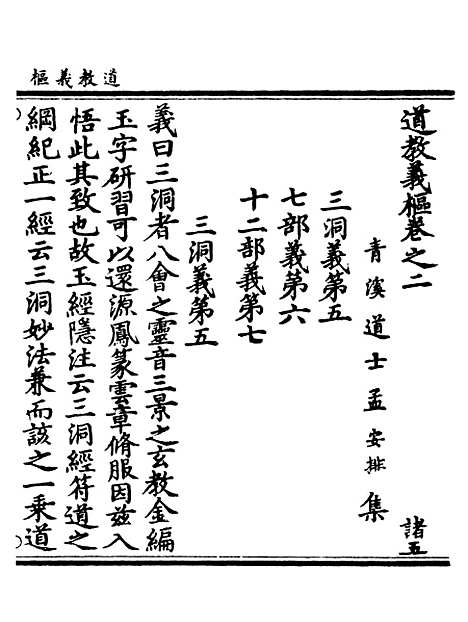 道教義樞
道教義樞卷之二
諸五
青溪道士孟安排集
三洞義第五
七部義第六
十二部義第七
三洞義第五
義曰三洞者八會之靈音三景之玄教金編
玉字研習可以還源鳳篆雲章脩服因兹入
悟此其致也故玉經隱注云三洞經符道之
綱紀正一經云三洞妙法兼而該之一乘道